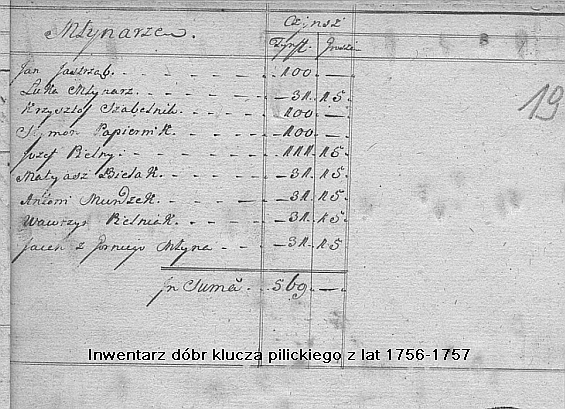 Czÿnsż
Młÿnarze. Tynf. Grosze
Jan Jastrząb. 100 —
Luka Młynarz. 31. 15
Krzysztof Szabelnik. 100 —
Szymon Papiernik. 100 —
Jozef Relny. 111. 15.
Matyasz Bielak. 31. 15
Antoni Mundzek. 31. 15
Wawrzyn Relniak. 31. 15
Jacen z Gornego Młyna 31. 15
Jn Sumã. 569. —
19
Inwentarz dóbr klucza pilickiego z lat 1756-1757